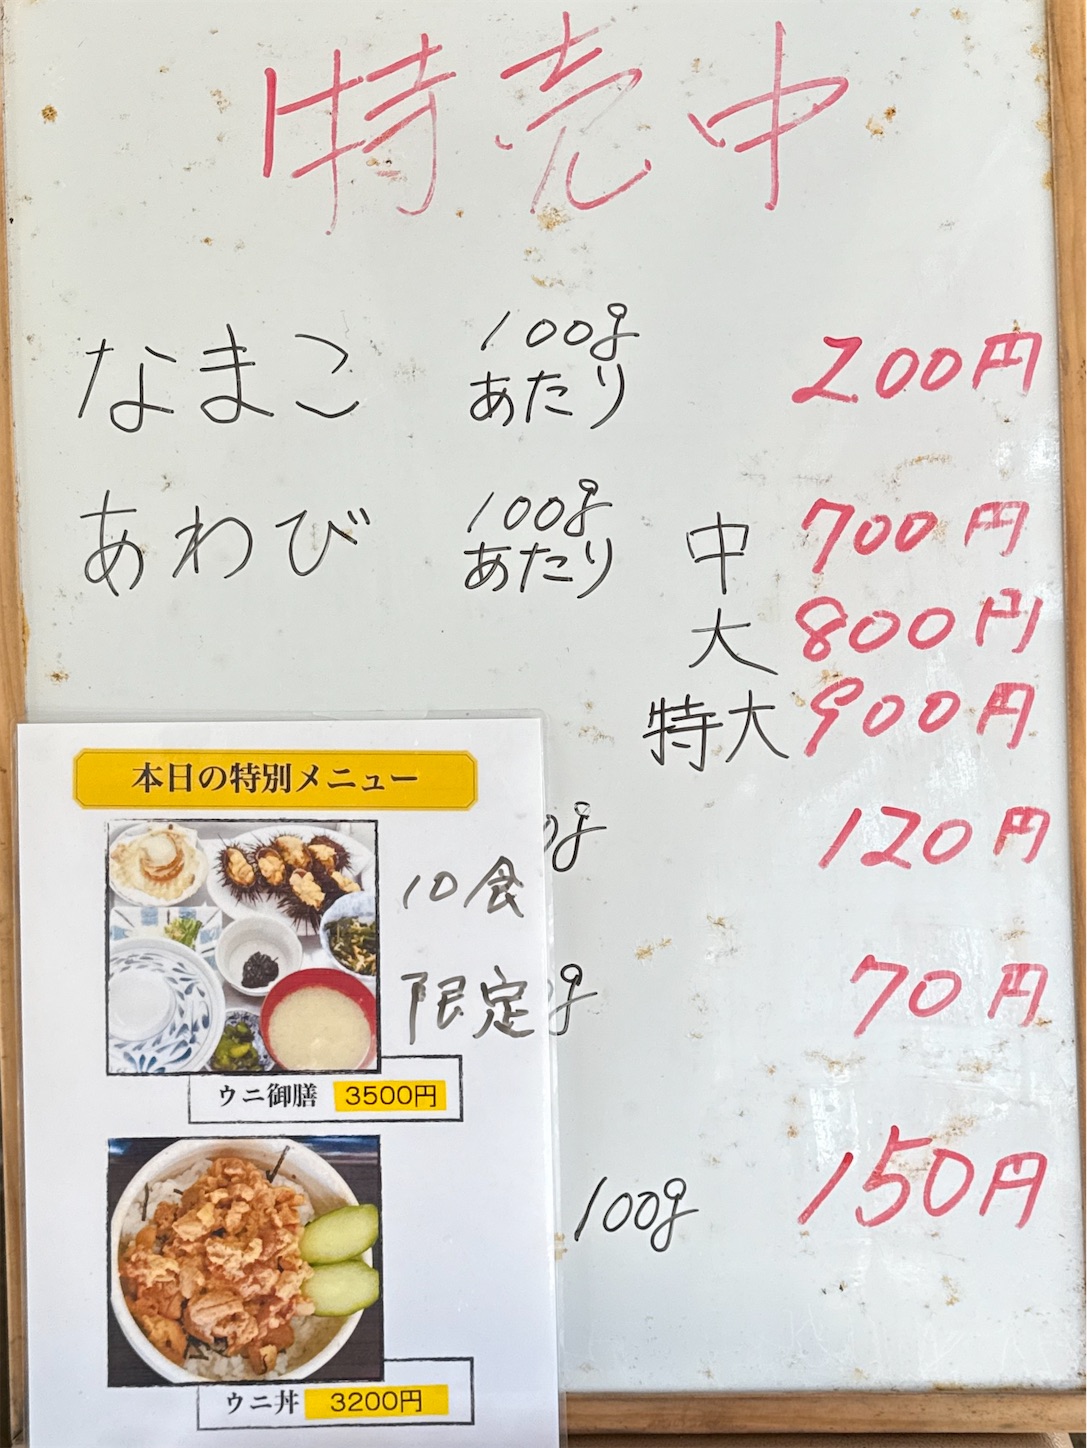 特売中
なまこ 100g あたり 200円
あわび 100g あたり 中 700円
大 800円
特大 900円
g 120円
g 70円
100g 150円
本日の特別メニュー
10食
限定
ウニ御膳 3500円
ウニ丼 3200円